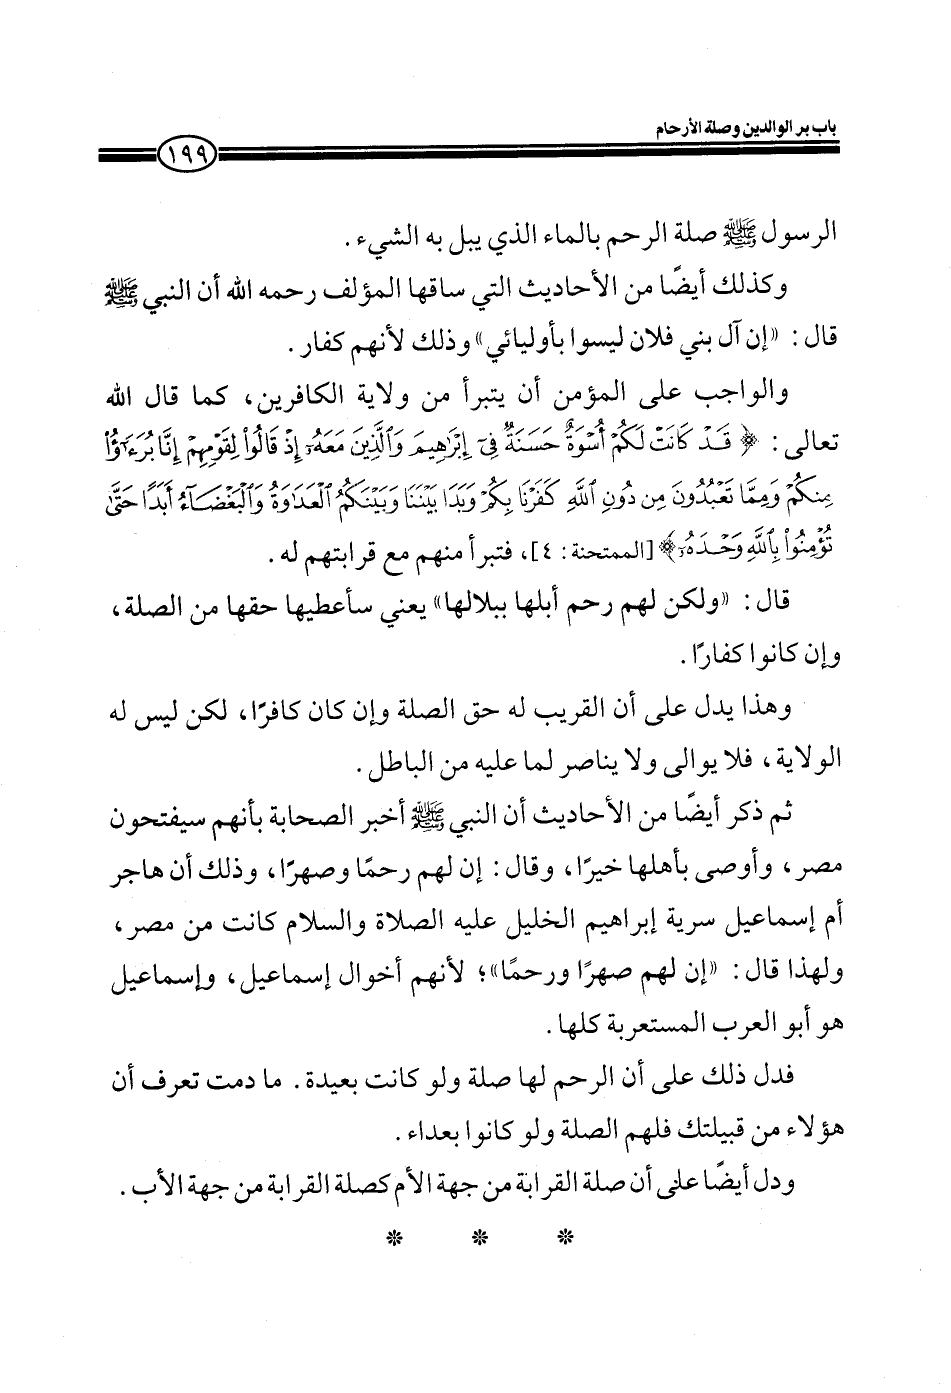 باب بر الوالدين وصلة الأرحام
١٩٩
الرسول ﷺ صلة الرحم بالماء الذي يبل به الشيء .
وكذلك أيضًا من الأحاديث التي ساقها المؤلف رحمه الله أن النبي ﷺ
قال : «إن آل بني فلان ليسوا بأوليائي» وذلك لأنهم كفار .
والواجب على المؤمن أن يتبرأ من ولاية الكافرين، كما قال الله
تعالى : ﴿ قَدْ كَانَتْ لَكُمْ أُسْوَةٌ حَسَنَةٌ فِيٓ إِبْرَٰهِيمَ وَٱلَّذِينَ مَعَهُۥٓ إِذْ قَالُوا۟ لِقَوْمِهِمْ إِنَّا بُرَءَٰٓؤُا۟
مِنكُمْ وَمِمَّا تَعْبُدُونَ مِن دُونِ ٱللَّهِ كَفَرْنَا بِكُمْ وَبَدَا بَيْنَنَا وَبَيْنَكُمُ ٱلْعَدَٰوَةُ وَٱلْبَغْضَآءُ أَبَدًا حَتَّىٰ
تُؤْمِنُوا۟ بِٱللَّهِ وَحْدَهُۥٓ ﴾ [الممتحنة : ٤]، فتبرأ منهم مع قرابتهم له .
قال : «ولكن لهم رحم أبلها ببلالها» يعني سأعطيها حقها من الصلة،
وإن كانوا كفارًا .
وهذا يدل على أن القريب له حق الصلة وإن كان كافرًا، لكن ليس له
الولاية، فلا يوالى ولا يناصر لما عليه من الباطل .
ثم ذكر أيضًا من الأحاديث أن النبي ﷺ أخبر الصحابة بأنهم سيفتحون
مصر، وأوصى بأهلها خيرًا، وقال : إن لهم رحمًا وصهرًا، وذلك أن هاجر
أم إسماعيل سرية إبراهيم الخليل عليه الصلاة والسلام كانت من مصر،
ولهذا قال : «إن لهم صهرًا ورحمًا»؛ لأنهم أخوال إسماعيل، وإسماعيل
هو أبو العرب المستعربة كلها .
فدل ذلك على أن الرحم لها صلة ولو كانت بعيدة . ما دمت تعرف أن
هؤلاء من قبيلتك فلهم الصلة ولو كانوا بعداء .
ودل أيضًا على أن صلة القرابة من جهة الأم كصلة القرابة من جهة الأب .
* * *